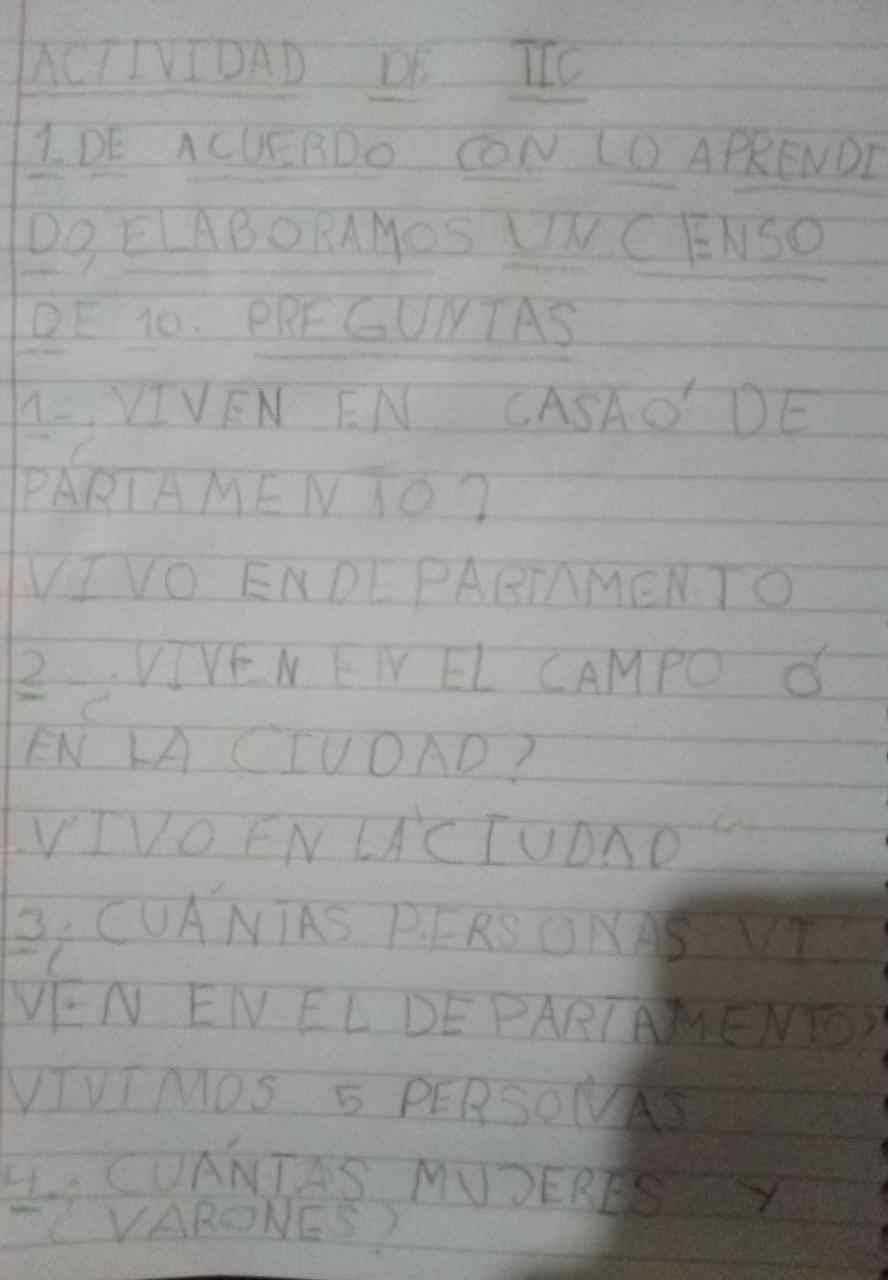 ACTIVIDAD DE TIC
1. DE ACUERDO CON LO APRENDI
DO, ELABORAMOS UN CENSO
DE 10. PREGUNTAS
1-. ¿VIVEN EN CASA Ó DE
PARTAMENTO?
VIVO EN DEPARTAMENTO
2-. ¿VIVEN EN EL CAMPO Ó
EN LA CIUDAD?
VIVO EN LA CIUDAD
3. ¿CUÁNTAS PERSONAS VI
VEN EN EL DEPARTAMENTO?
VIVIMOS 5 PERSONAS
4-. ¿CUÁNTAS MUJERES Y
VARONES?